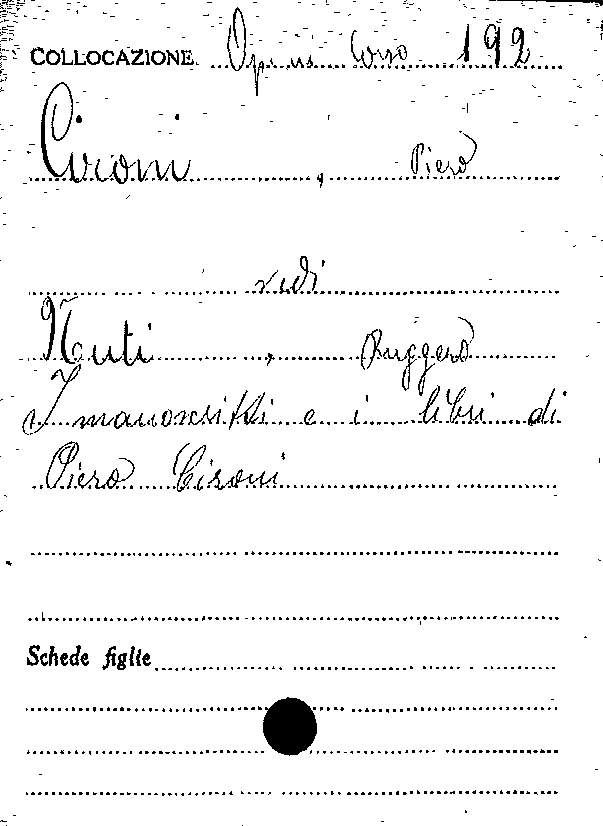 COLLOCAZIONE Op. in Corso 192
Cironi, Piero
vedi
Nuti, Ruggero
I manoscritti e i libri di
Piero Cironi
Schede figlie